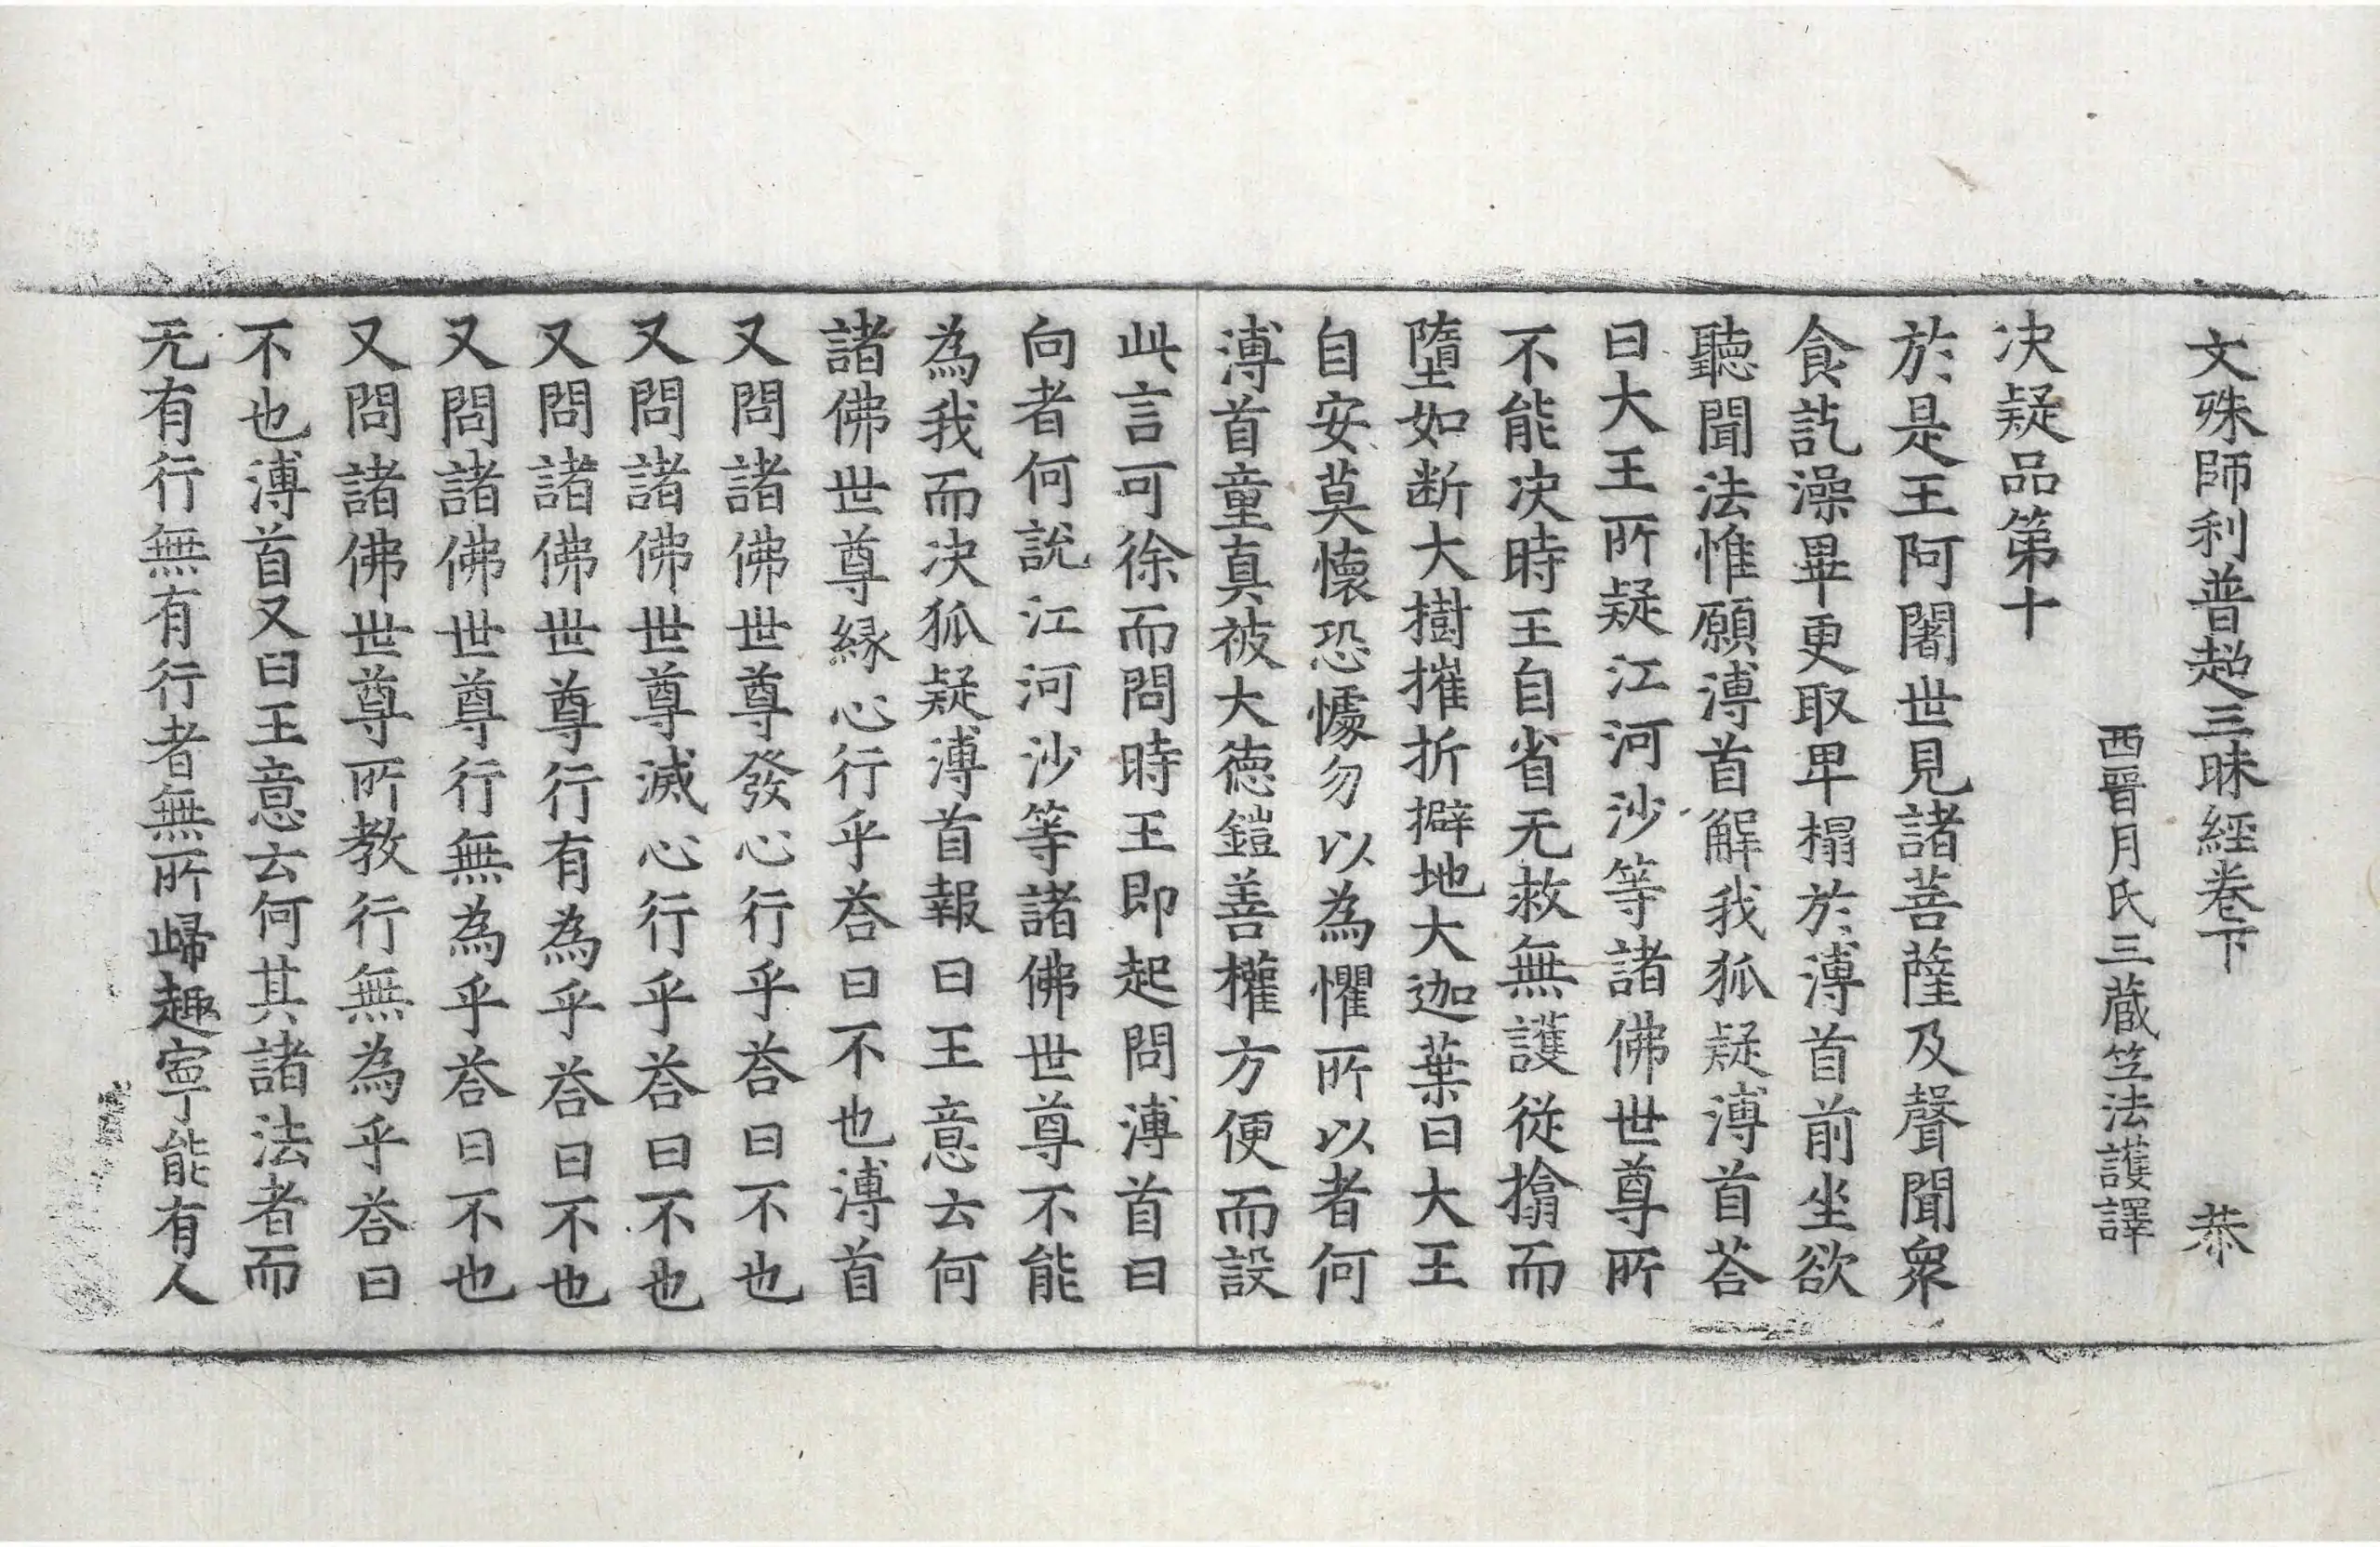 文殊師利普超三昧經卷下　恭
西晉月氏三藏笁法護譯
决疑品第十
於是王阿闍世見諸菩薩及聲聞衆
食訖澡畢更取卑榻於溥首前坐欲
聽聞法惟願溥首解我狐疑溥首荅
曰大王所疑江河沙等諸佛世尊所
不能决時王自省无救無護從㩉而
墮如断大樹摧折擗地大迦葉曰大王
自安莫懷恐懅勿以為懼所以者何
溥首童真被大德鎧善權方便而設
此言可徐而問時王即起問溥首曰
向者何說江河沙等諸佛世尊不能
為我而决狐疑溥首報曰王意云何
諸佛世尊緣心行乎荅曰不也溥首
又問諸佛世尊發心行乎荅曰不也
又問諸佛世尊滅心行乎荅曰不也
又問諸佛世尊行有為乎荅曰不也
又問諸佛世尊行無為乎荅曰不也
又問諸佛世尊所教行無為乎荅曰
不也溥首又曰王意云何其諸法者而
无有行無有行者無所歸趣寧能有人